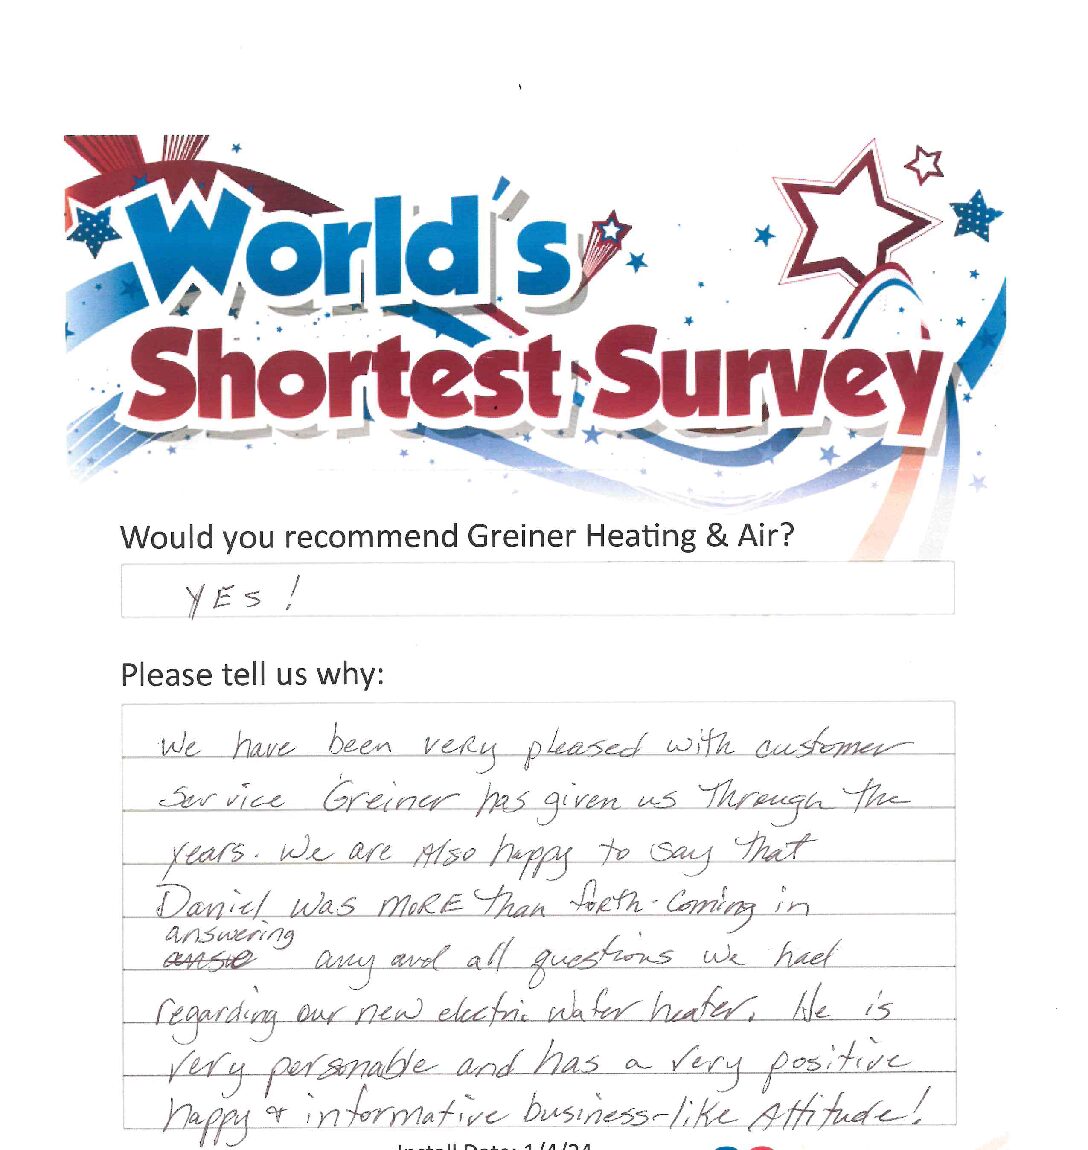 World's
Shortest Survey
Would you recommend Greiner Heating & Air?
YES!
Please tell us why:
We have been very pleased with customer
Service Greiner has given us Through the
years. We are Also happy to say that
Daniel was MORE Than forth-coming in
answering
any and all questions we had
regarding our new electric water heater. He is
very personable and has a very positive
happy & informative business-like Attitude!
Install Date: 1/4/24